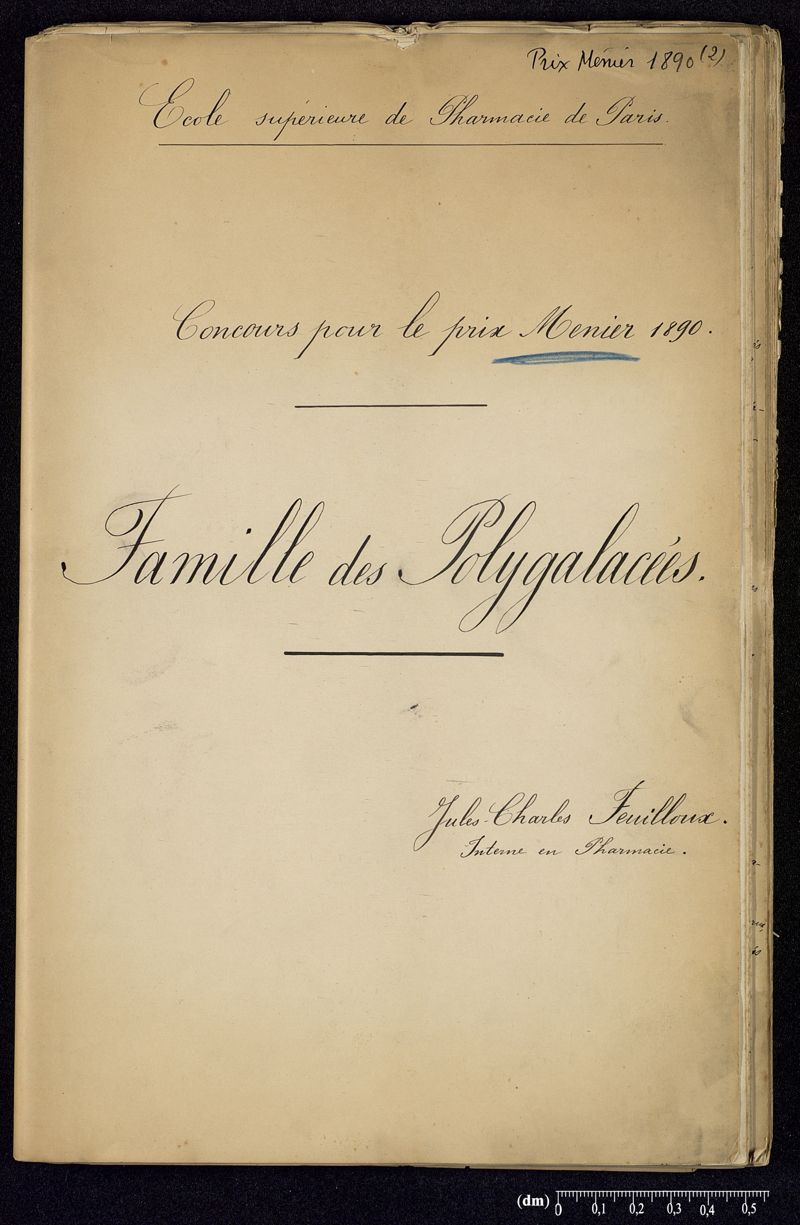 Prix Ménier 1890 (2)
Ecole supérieure de Pharmacie de Paris.
Concours pour le prix Menier 1890.
Famille des Polygalacées.
Jules-Charles Feuilloux.
Interne en Pharmacie.
(dm) 0 0,1 0,2 0,3 0,4 0,5